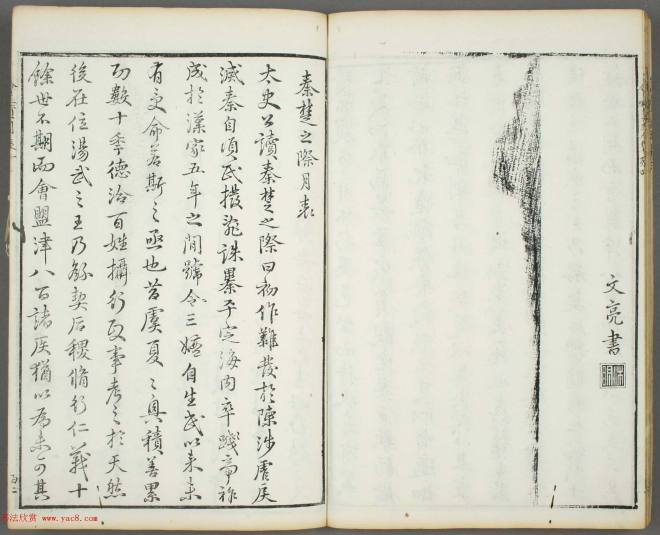 文亮書
秦楚之際月表
太史公讀秦楚之際曰初作難發於陳涉虐戾
滅秦自項氏撥亂誅暴平定海內卒踐帝祚
成於漢家五年之間號令三嬗自生民以來未
有受命若斯之亟也昔虞夏之興積善累
功數十年德洽百姓攝行政事考之於天然
後在位湯武之王乃繇契后稷脩行仁義十
餘世不期而會盟津八百諸侯猶以為未可其
书法欣赏 www.yac8.com